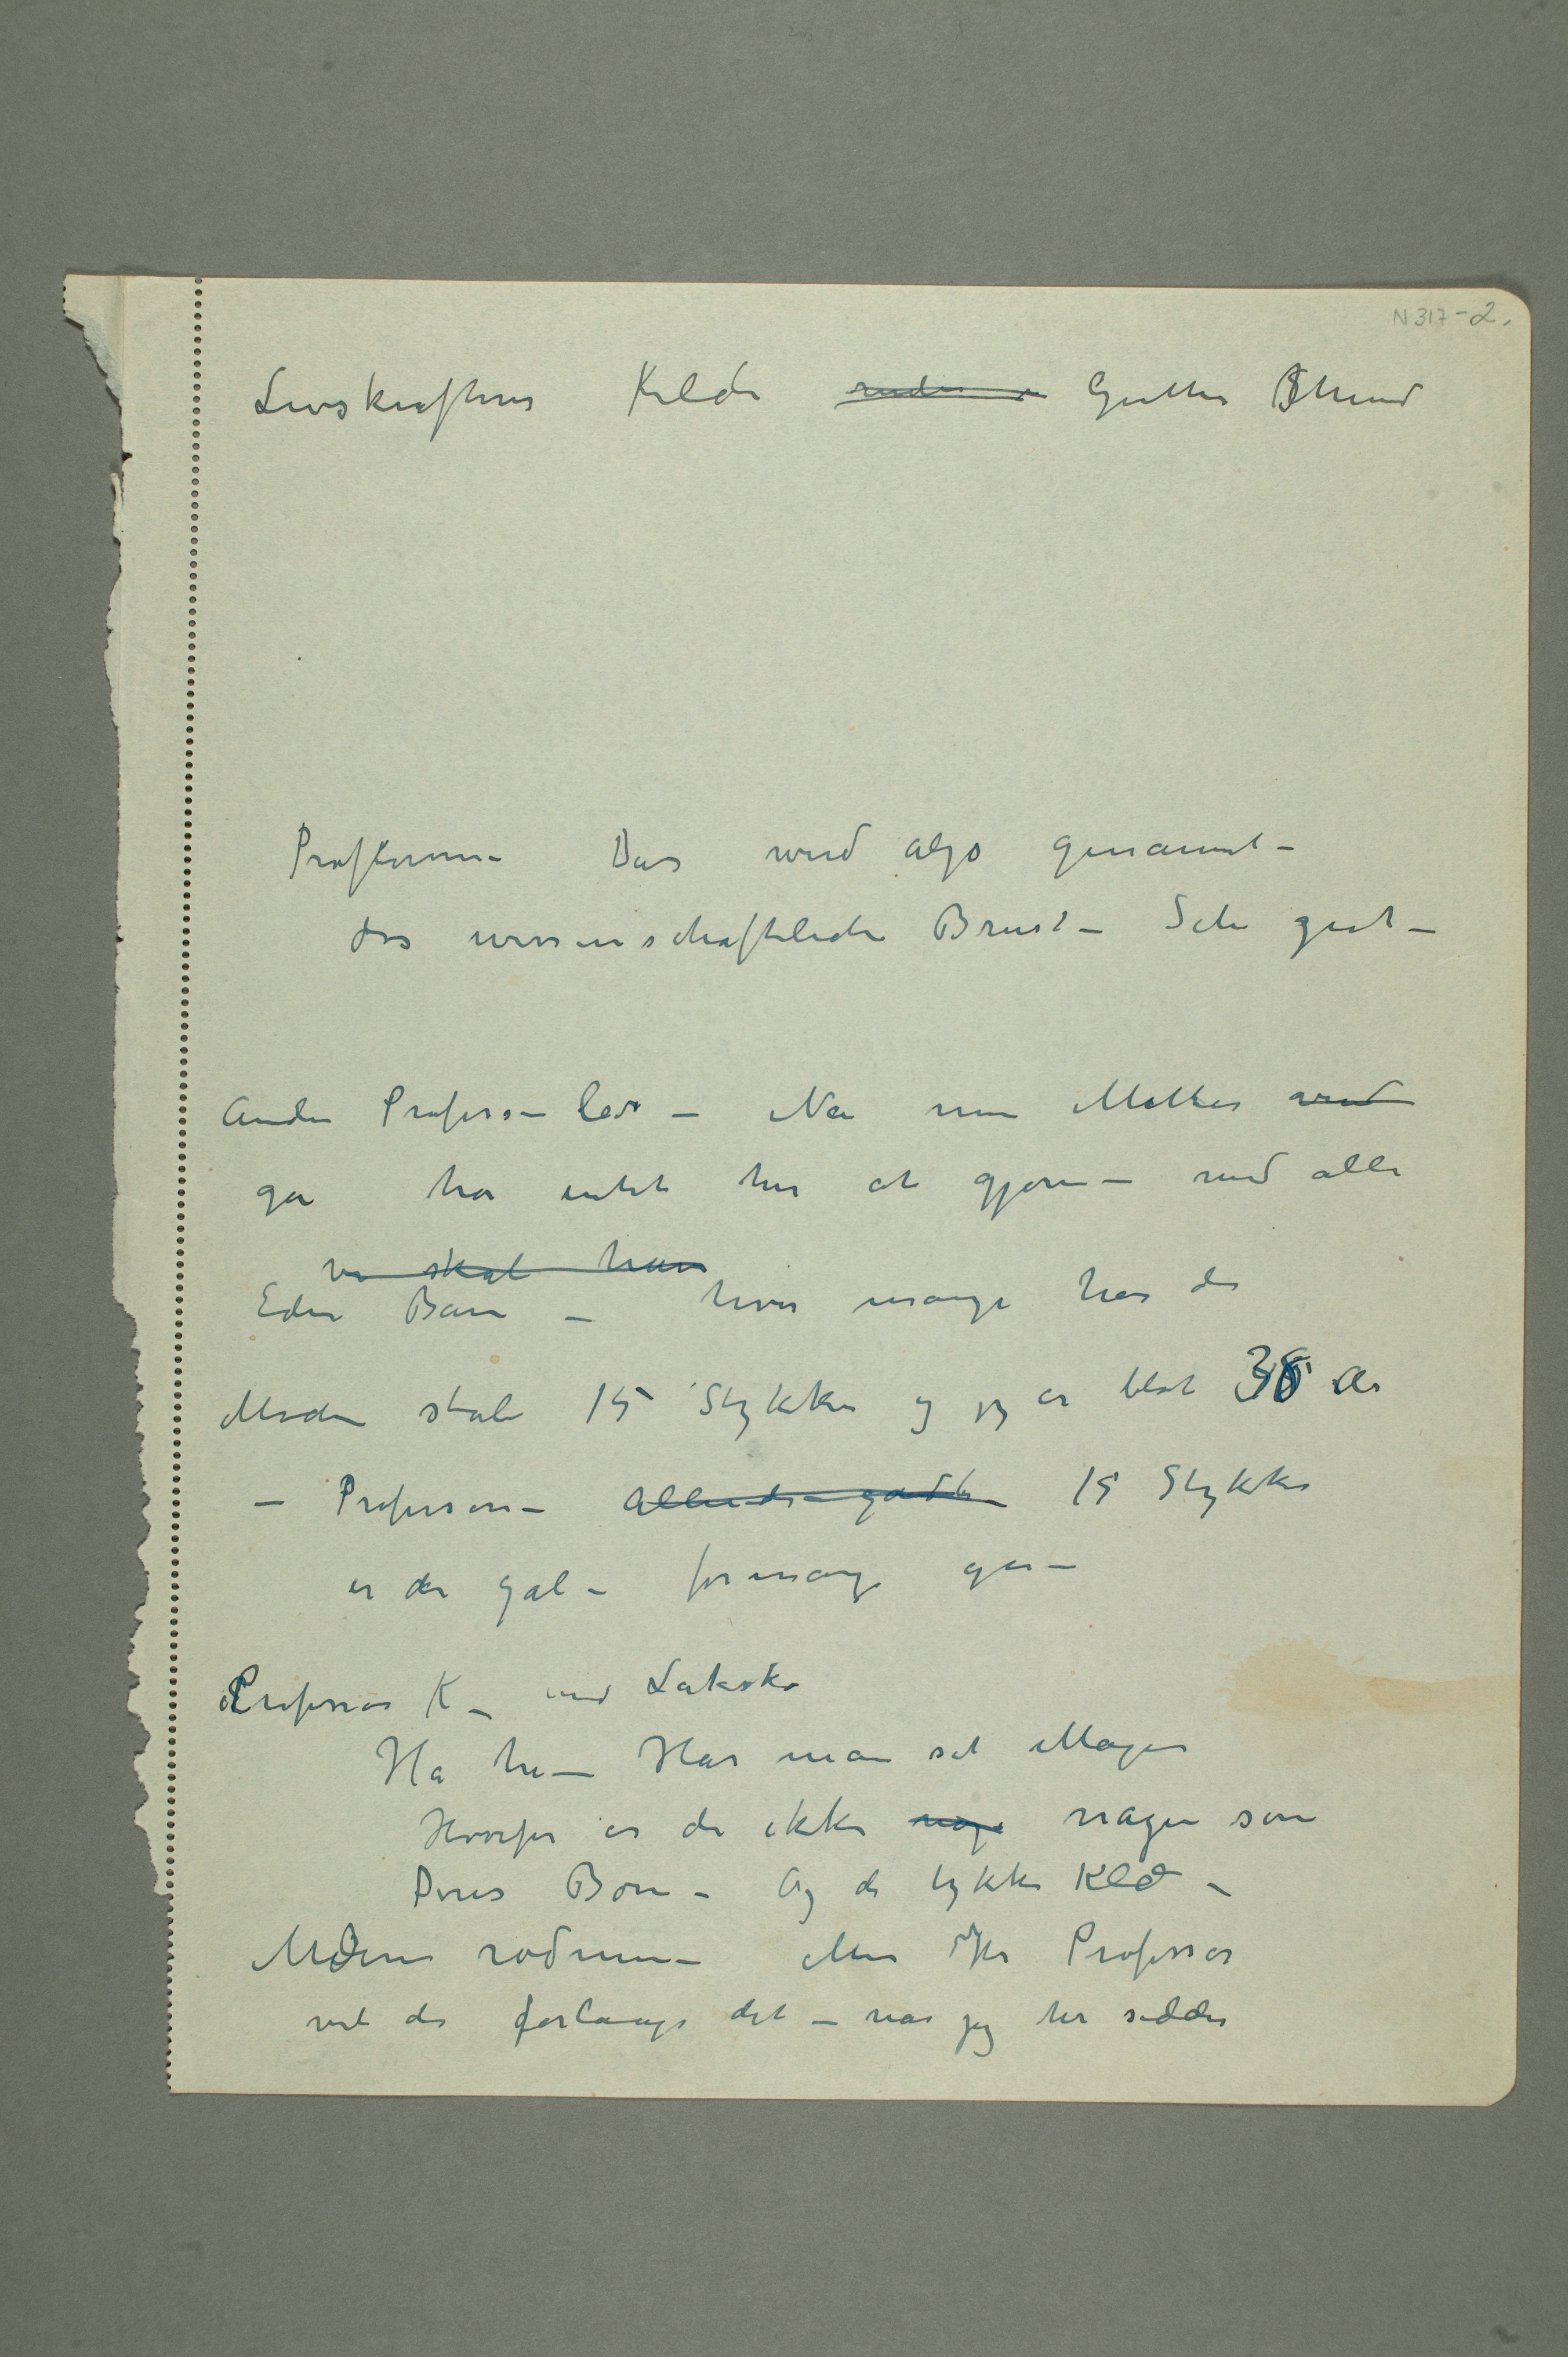 N 317-2.
Livskraftens Kilde Guttes
Das wird algo genannt –
das wissenschaftliche Brust – Sehr gut –
Anden Professor – Nå min Mutter
går har intet her at gjøre – med alle
vi skal have
Eders Barn – hvor mange har de
Moder stolt 15 Stykker og jeg er blot 38 År
– Professoren – 15 Stykker
er de gal – for mange går –
Professor K – med Laksko
Ha he – Har man set Magen
Hvorfor er de ikke noge nogen som
Deres Børn – Og de tykke Klæ –
Moderen rødmer – Men Hr Professor
vil de forlange det – når jeg her sidder